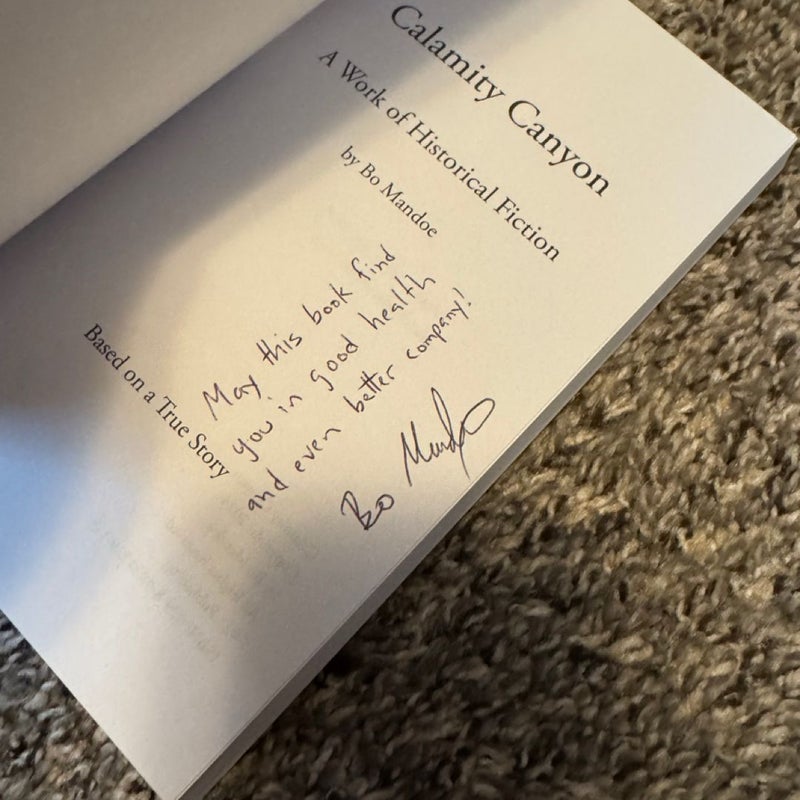 Calamity Canyon
A Work of Historical Fiction
by Bo Mandoe
May this book find
you in good health
and even better company!
Bo Mandoe
Based on a True Story